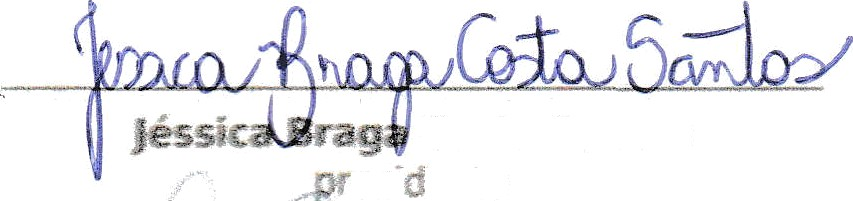 Jessica Braga Costa Santos
Jéssica Braga